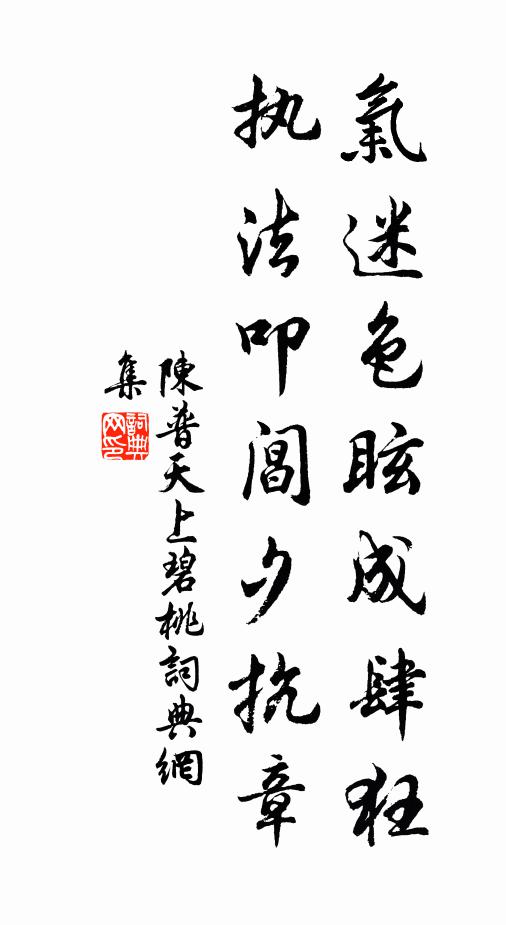 氣迷色眩成肆狂
执法叩閶夕抗章
陳普天上碧桃詞典網
集
詞典
网印